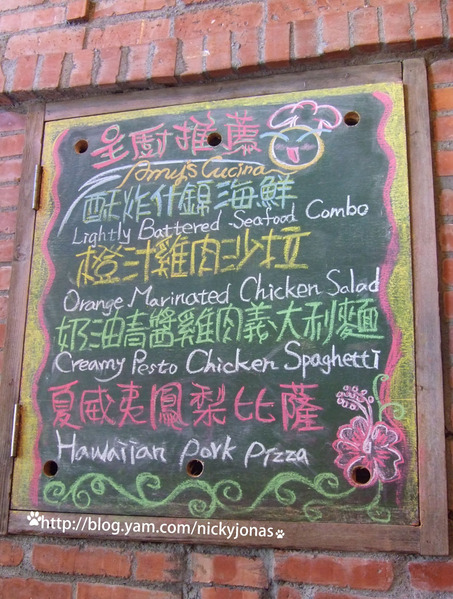 主廚推薦
Amy's Cucina
酥炸什錦海鮮
Lightly Battered Seafood Combo
橙汁雞肉沙拉
Orange Marinated Chicken Salad
奶油青醬雞肉義大利麵
Creamy Pesto Chicken Spaghetti
夏威夷鳳梨比薩
Hawaiian Pork Pizza
http://blog.yam.com/nickyjonas